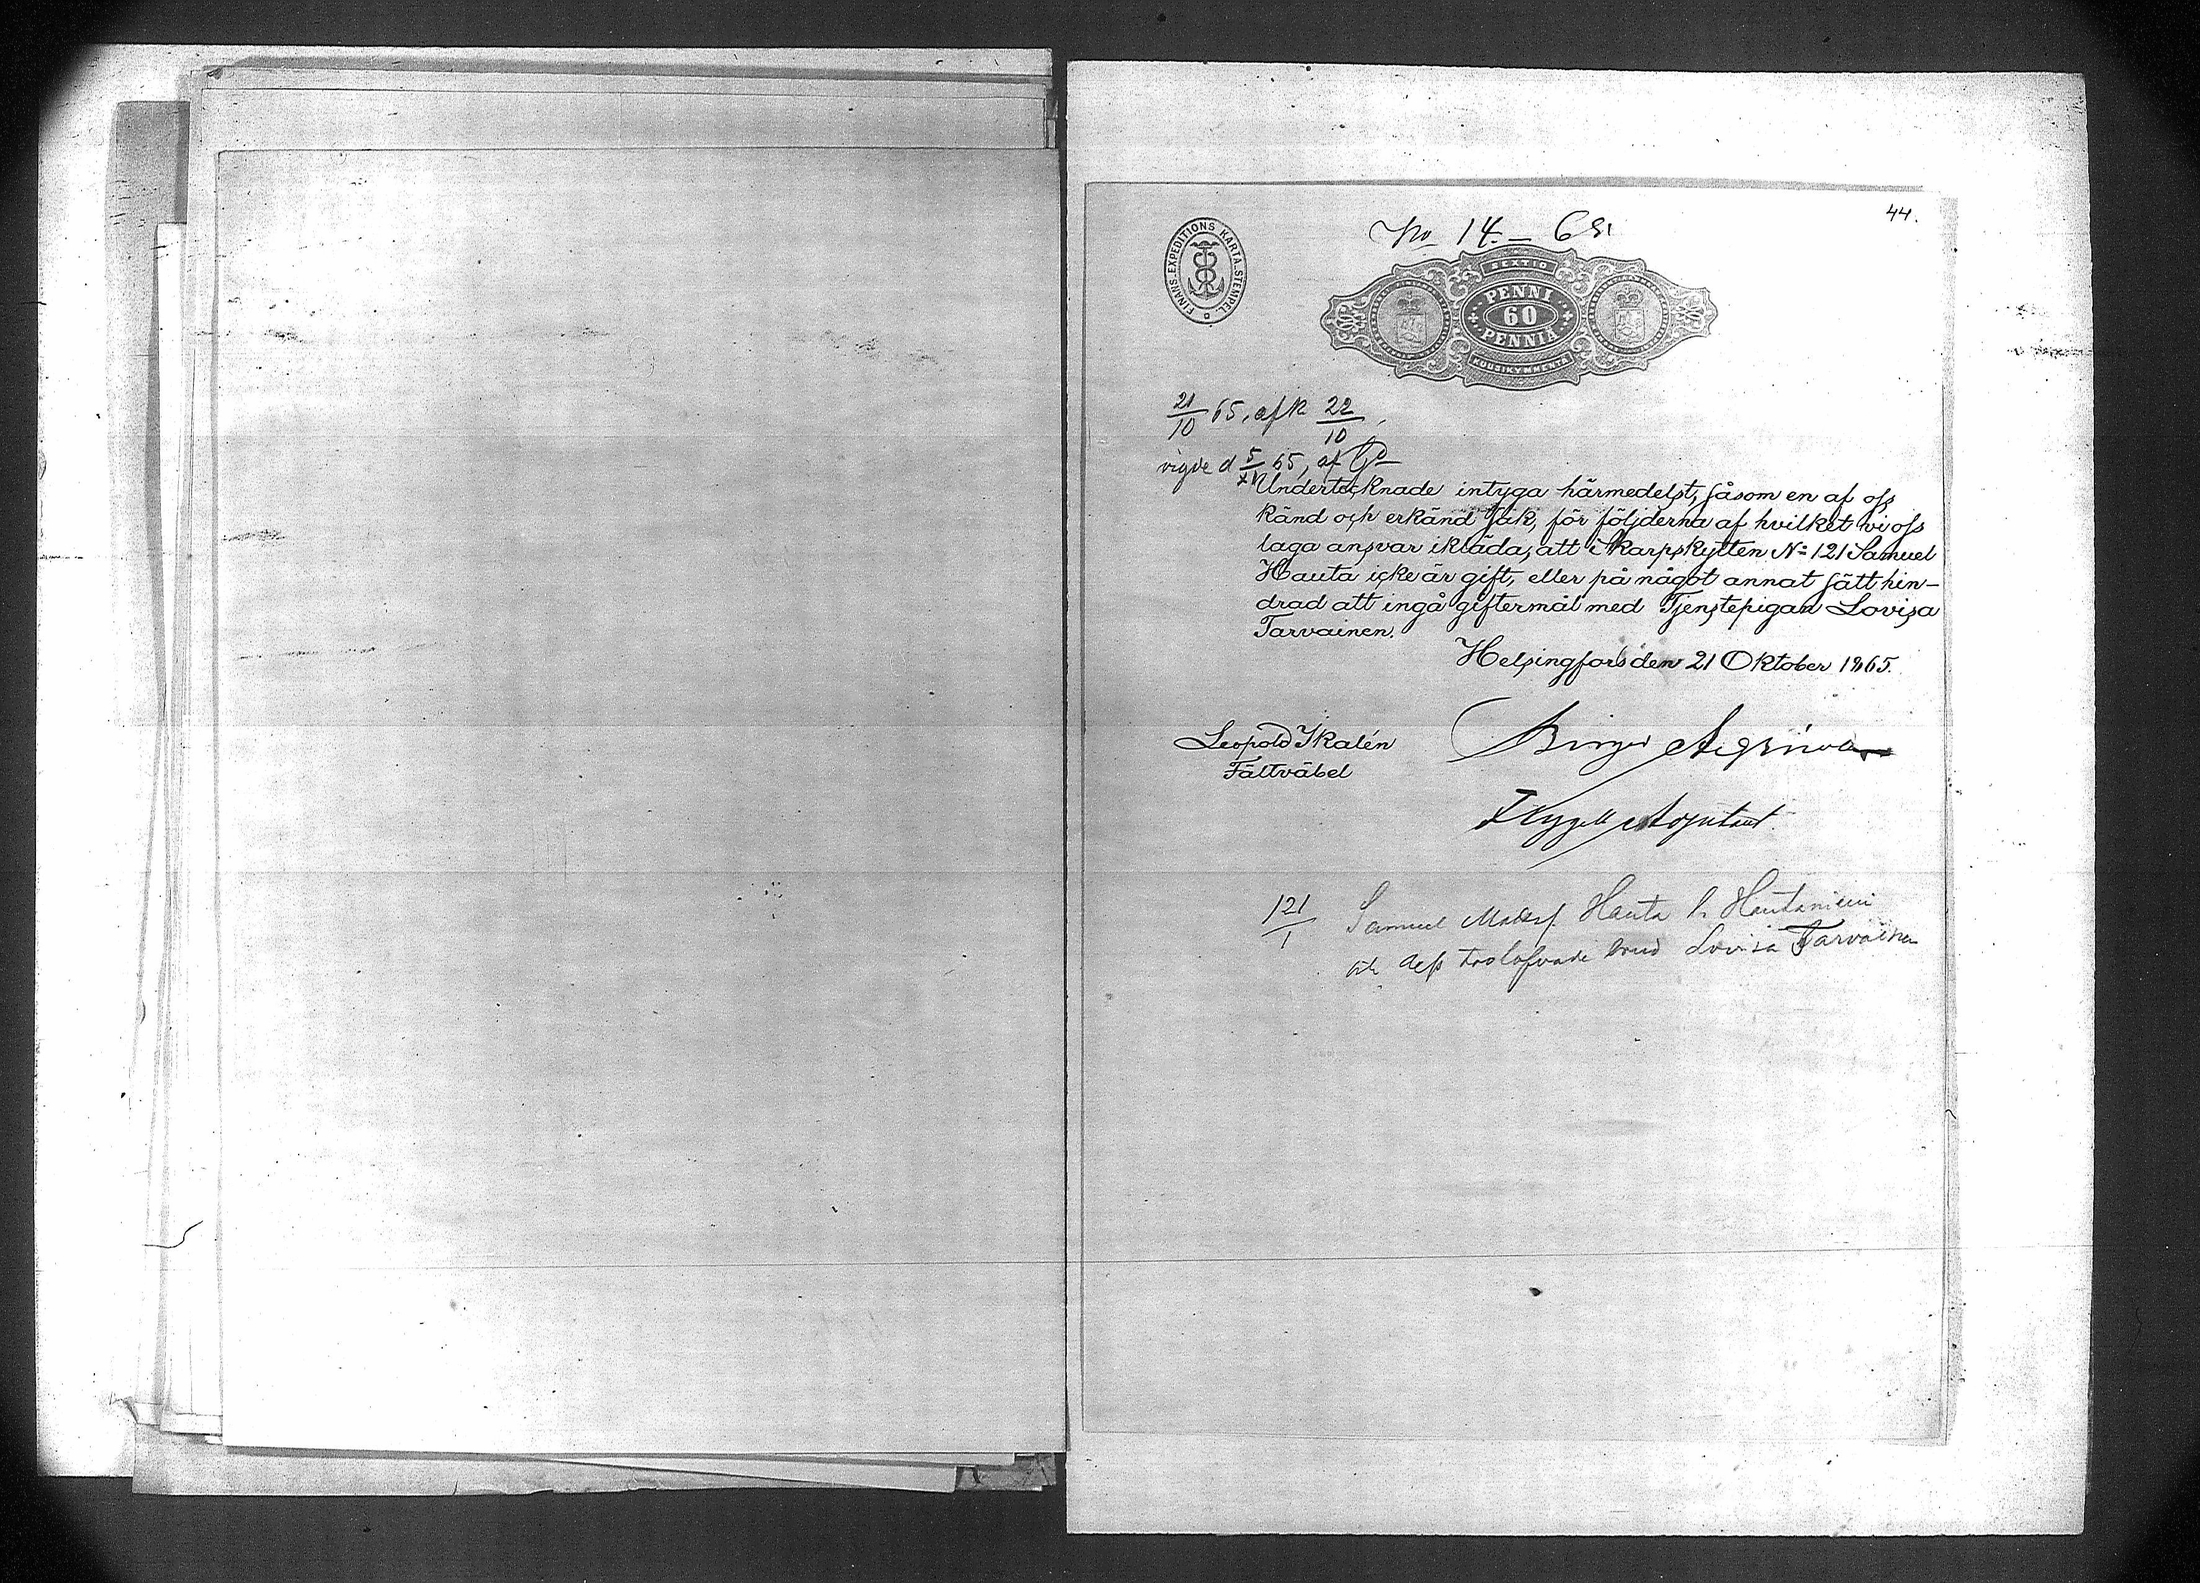 44.
No 14. —
FINANS-EXPEDITIONS KARTA-STEMPEL.
SEXTIO
PENNI
60
PENNIÄ
KUUSIKYMMENTÄ
21/10 65, afk 22/10
vigde d 5/XI 65, af
Undertecknade intyga härmedelst, såsom en af oss
känd och erkänd sak, för följderna af hvilket vi oss
laga ansvar ikläda, att Skarpskytten No 121 Samuel
Hauta icke är gift, eller på något annat sätt hin-
drad att ingå giftermål med Tjenstepigan Lovisa
Tarvainen.
Helsingfors den 21 Oktober 1865.
Leopold Ikalén
Fältväbel
Birger
Adjutant.
121/1 Samuel Matsf. Hauta
och dess trolofvade brud Lovisa Tarvainen